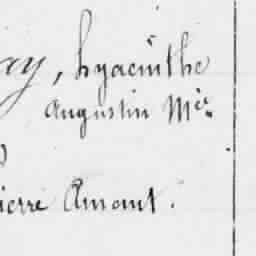 ry, hyacinthe
Augustin Mie.
ierre Amont.